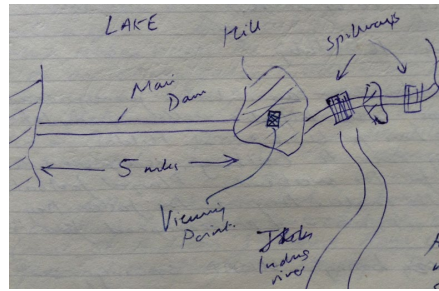 LAKE
Hill
Spillways
Main
Dam
5 miles
Viewing
Point.
Indus
river